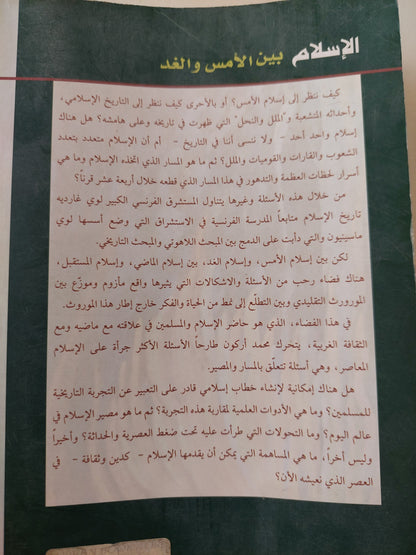 الإسلام بين الأمس والغد
كيف ننظر إلى إسلام الأمس؟ أو بالأحرى كيف ننظر إلى التاريخ الإسلامي،
وأحداثه المتشعبة و"الملل والنحل" التي ظهرت في تاريخه وعلى هامشه؟ هل هناك
إسلام واحد أحد - ولا ننسى أننا في التاريخ - أم أن الإسلام متعدد بتعدد
الشعوب والقارات والقوميات والملل؟ ثم ما هو المسار الذي اتخذه الإسلام وما هي
أسرار لحظات العظمة والتدهور في هذا المسار الذي قطعه خلال أربعة عشر قرناً؟
من خلال هذه الأسئلة وغيرها يتناول المستشرق الفرنسي الكبير لوي غارديه
تاريخ الإسلام متابعاً المدرسة الفرنسية في الاستشراق التي وضع أسسها لوي
ماسينيون والتي دأبت على الدمج بين المبحث اللاهوتي والمبحث التاريخي.
لكن بين إسلام الأمس، وإسلام الغد، بين إسلام الماضي، وإسلام المستقبل،
هناك فضاء رحب من الأسئلة والاشكالات التي يثيرها واقع مأزوم وموزّع بين
الموروث التقليدي وبين التطلّع إلى نمط من الحياة والفكر خارج إطار هذا الموروث.
في هذا الفضاء، الذي هو حاضر الإسلام والمسلمين في علاقته مع ماضيه ومع
الثقافة الغربية، يتحرك محمد أركون طارحاً الأسئلة الأكثر جرأة على الإسلام
المعاصر، وهي أسئلة تتعلّق بالمسار والمصير.
هل هناك إمكانية لإنشاء خطاب إسلامي قادر على التعبير عن التجربة التاريخية
للمسلمين؟ وما هي الأدوات العلمية لمقاربة هذه التجربة؟ ثم ما هو مصير الإسلام في
عالم اليوم؟ وما التحولات التي طرأت عليه تحت ضغط العصرية والحداثة؟ وأخيراً
وليس أخراً، ما هي المساهمة التي يمكن أن يقدمها الإسلام - كدين وثقافة - في
العصر الذي نعيشه الأن؟